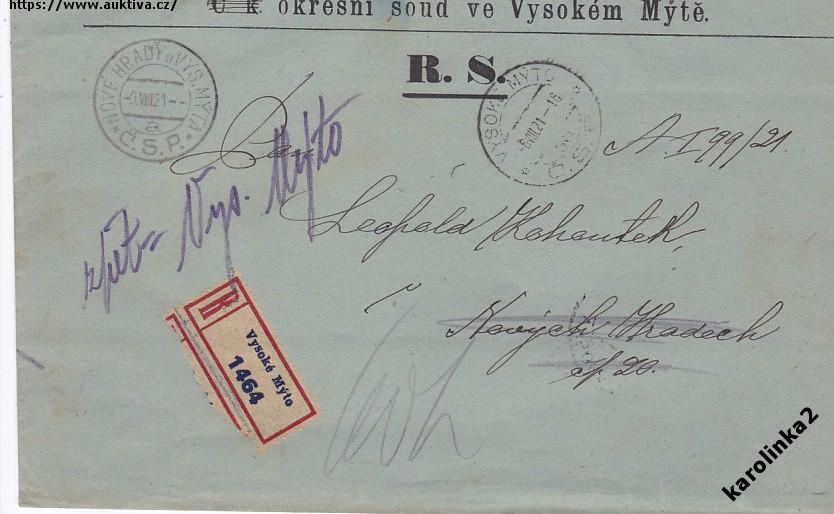 https://www.auktiva.cz/
C. k. okresní soud ve Vysokém Mýtě.
R. S.
NOVÉ HRADY u VYS. MÝTA
-9.VIII.21--
a
Č.S.P.
VYSOKÉ MÝTO
-8.VIII.21-16
Pan
A I 99/21.
zpět = Vys. Mýto
Leopold Kohoutek,
v
Nových Hradech
čp 20.
R
Vysoké Mýto
1464
karolinka2